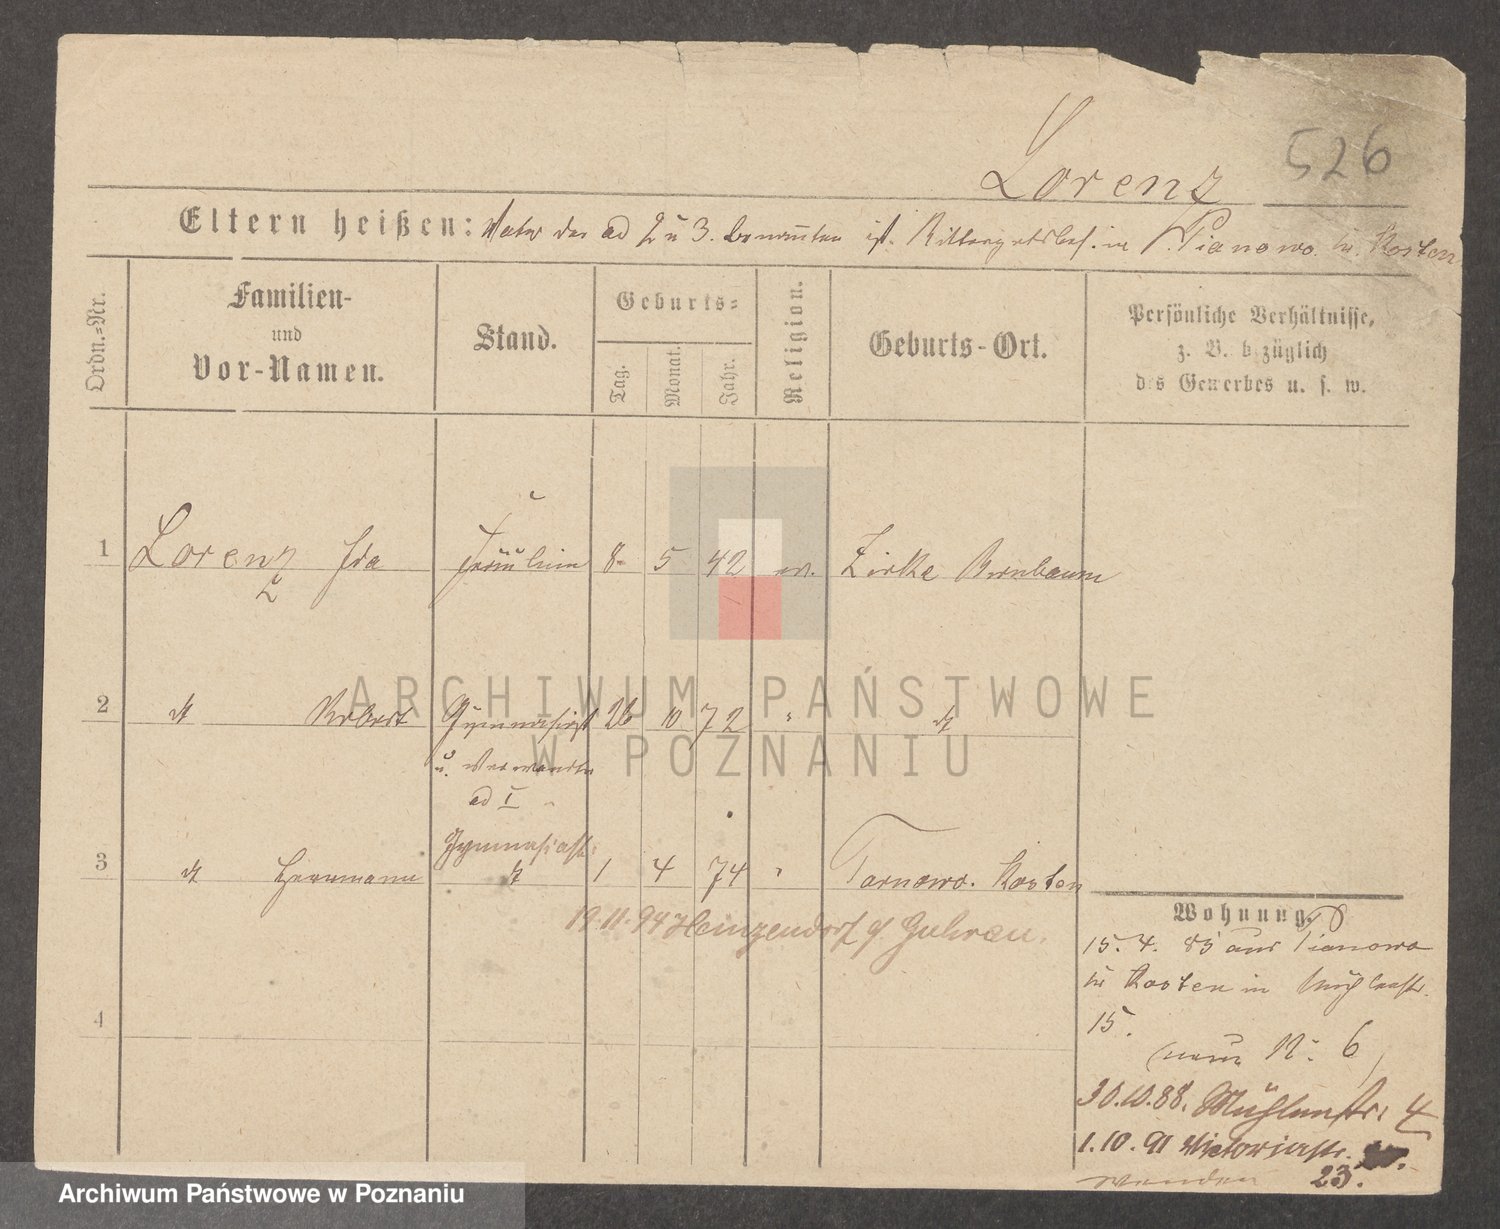 526
Lorenz
Eltern heißen: Vater der ad 2 u 3. benannten ist. Rittergutsbes. in Pianowo. Kr. Kosten
Ordn.=Nr.
Familien-
und
Vor-Namen.
Stand.
Geburts=
Tag.
Monat.
Jahr.
Religion.
Geburts-Ort.
Persönliche Verhältnisse,
z. B. bezüglich
des Gewerbes u. s. w.
1 Lorenz Ida Fräulein 8. 5 42 ev. Zirke Birnbaum
2 dt Robert Gymnasiast 26 10 72 " dt
u. Verwandte
ad I
Gymnasiast
3 dt Herrmann 1 4 74 " Tarnowo. Kosten
19.11.94 Heinzendorf Guhrau.
4
Wohnung.
15. 4. 85 aus Pianowo
Kr Kosten in Mühlenstr.
15.
(neue N. 6)
30.10.88. Mühlenstr. 4
1.10.91 Victoriastr.
wenden 23.
ARCHIWUM PAŃSTWOWE
W POZNANIU
Archiwum Państwowe w Poznaniu